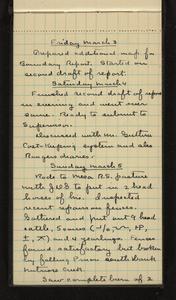 Friday March 3
Prepared additional map for
Boundary Report. Started on
second draft of report.
Saturday March 4
Finished second draft of report
in evening and went over
same. Ready to submit to
Supervisor.
Discussed with Mr.
Cost-Keeping system and also
Rangers diaries.
Sunday March 5
Rode to Mesa R.S. pasture
with J.E.S. to put in 2 head
horses of his. Inspected
recent repairs on fences.
Gathered and put out 9 head
cattle, 5 cows
and 4 yearlings. Fence
found satisfactory but broken
by falling Pinon south bank
Creek.
Saw complete burn of 2